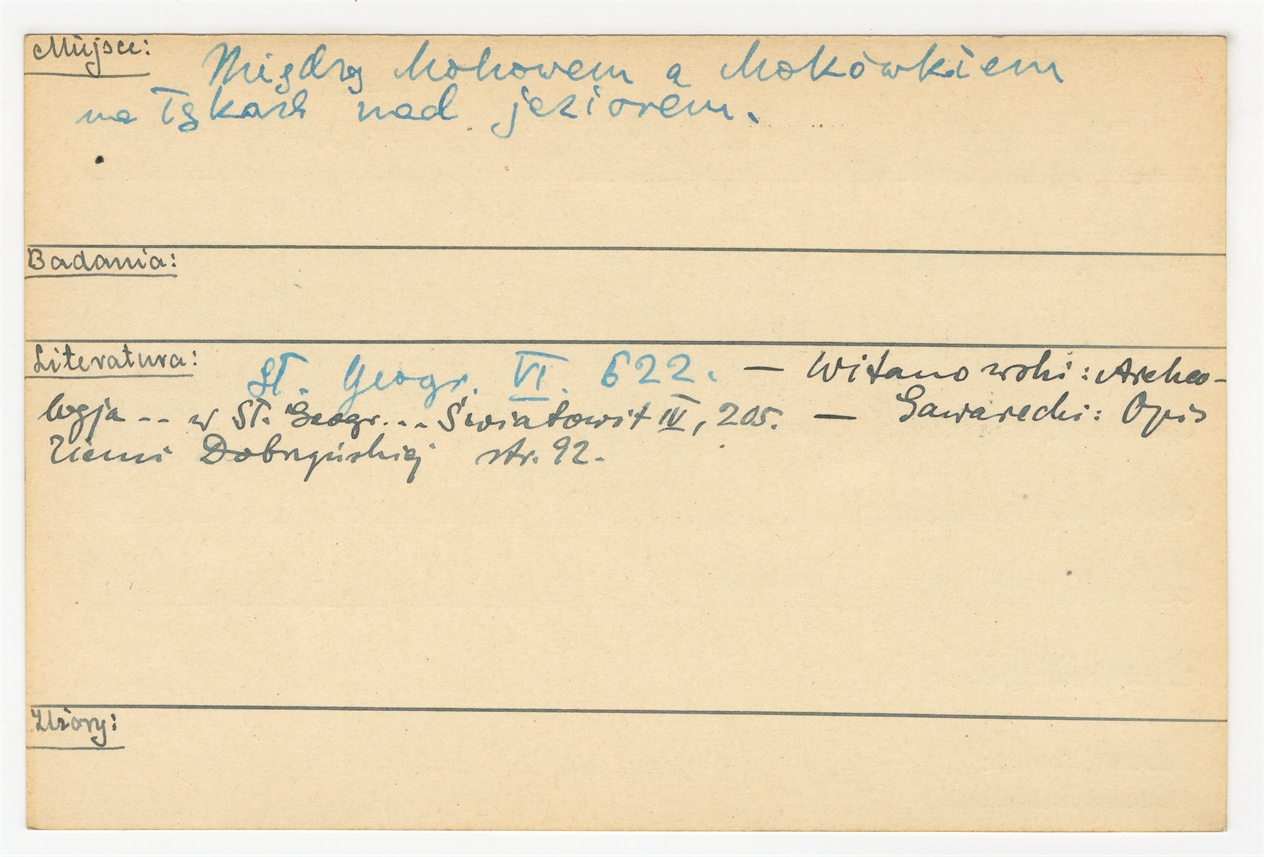 Miejsce: Między Mokowem a Mokówkiem
na łąkach nad jeziorem.
Badania:
Literatura: Sł. Geogr. VI. 622. — Witanowski: Archeo-
logja -- w Sł. Geogr... Światowit IV, 205. — Gawarecki: Opis
Ziemi Dobrzyńskiej str. 92.
Zbiory: